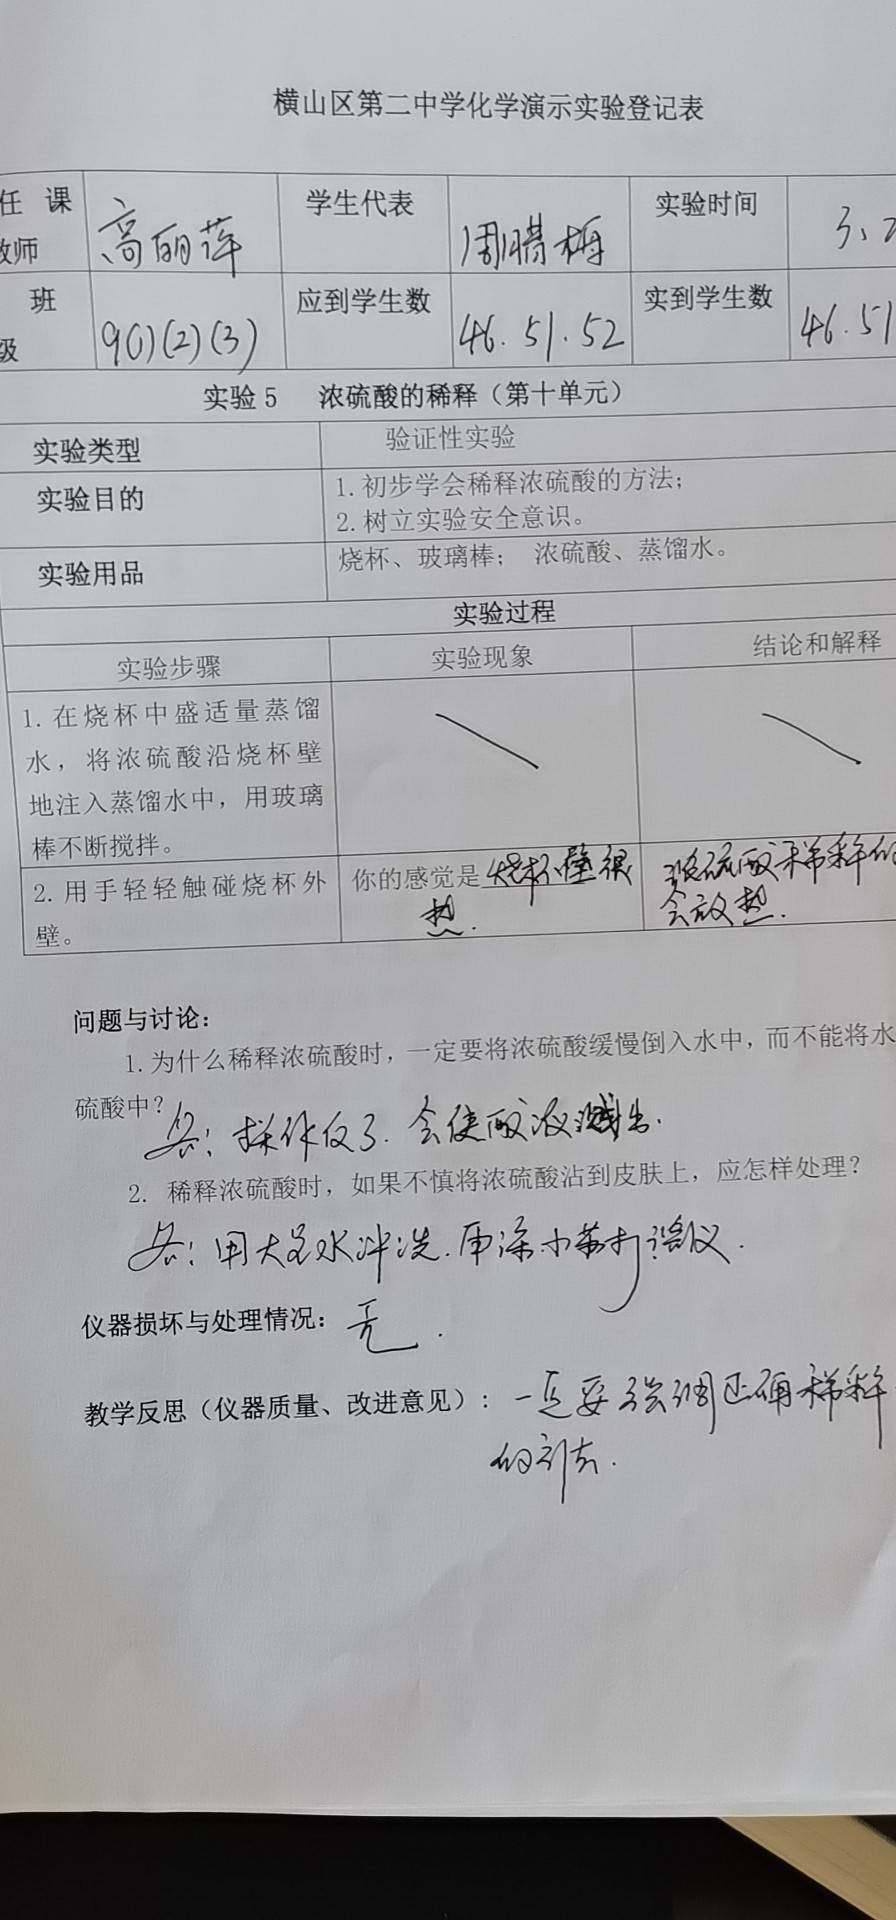 横山区第二中学化学演示实验登记表
任 课
教师
高丽萍
学生代表
周腊梅
实验时间
3、2
班
级
9(1)(2)(3)
应到学生数
46.51.52
实到学生数
46.51
实验 5 浓硫酸的稀释（第十单元）
实验类型
验证性实验
实验目的
1. 初步学会稀释浓硫酸的方法；
2. 树立实验安全意识。
实验用品
烧杯、玻璃棒； 浓硫酸、蒸馏水。
实验过程
实验步骤
实验现象
结论和解释
1. 在烧杯中盛适量蒸馏
水，将浓硫酸沿烧杯壁
地注入蒸馏水中，用玻璃
棒不断搅拌。
2. 用手轻轻触碰烧杯外
壁。
你的感觉是 烧杯壁很
热.
浓硫酸稀释的
会放热.
问题与讨论：
1. 为什么稀释浓硫酸时，一定要将浓硫酸缓慢倒入水中，而不能将水
硫酸中？
答：操作反了.会使酸液溅出.
2. 稀释浓硫酸时，如果不慎将浓硫酸沾到皮肤上，应怎样处理？
答：用大量水冲洗.再涂小苏打溶液.
仪器损坏与处理情况：无.
教学反思（仪器质量、改进意见）：一定要强调正确稀释
的方法.